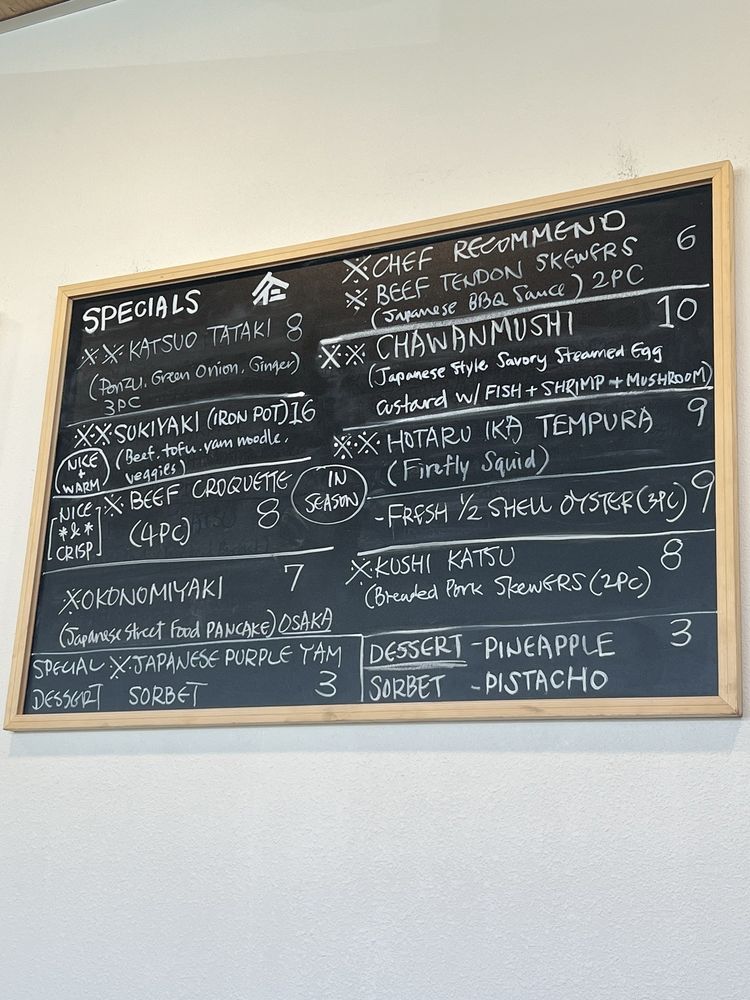 SPECIALS
※※ KATSUO TATAKI 8
(Ponzu, Green Onion, Ginger)
3PC
※※ SUKIYAKI (IRON POT) 16
(Beef, tofu, yam noodle,
veggies)
NICE
+
WARM
※ BEEF CROQUETTE
(4PC) 8
NICE
*&*
CRISP
※OKONOMIYAKI 7
(Japanese Street Food PANCAKE) OSAKA
SPECIAL ※JAPANESE PURPLE YAM
DESSERT SORBET 3
※ CHEF RECOMMEND
※ BEEF TENDON SKEWERS 6
(Japanese BBQ Sauce) 2PC
※※ CHAWANMUSHI 10
(Japanese Style Savory Steamed Egg
custard w/ FISH + SHRIMP + MUSHROOM)
※※ HOTARU IKA TEMPURA 9
(Firefly Squid)
IN
SEASON
-FRESH 1/2 SHELL OYSTER (3PC) 9
※KUSHI KATSU 8
(Breaded Pork SKEWERS (2PC)
DESSERT -PINEAPPLE 3
SORBET -PISTACHO